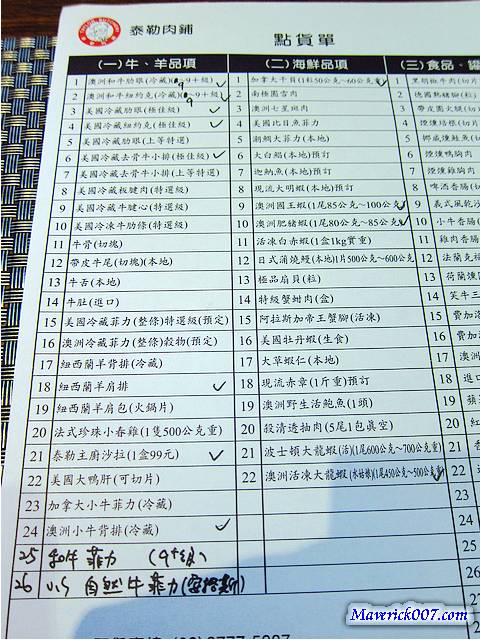 泰勒肉鋪
點貨單
(一)牛、羊品項
1 澳洲和牛肋眼(冷藏)(9+級)
2 澳洲和牛紐約克(冷藏)(9+級)
3 美國冷藏肋眼(極佳級)
4 美國冷藏紐約克(極佳級)
5 美國冷藏肋眼(上等特選)
6 美國冷藏去骨牛小排(極佳級)
7 美國冷藏去骨牛小排(上等特選)
8 美國冷藏板腱肉(特選級)
9 美國冷藏牛腱心(特選級)
10 美國冷凍牛肋條(特選)
11 牛骨(切塊)
12 帶皮牛尾(切塊)(本地)
13 牛舌(本地)
14 牛肚(進口)
15 美國冷藏菲力(整條)特選級(預定)
16 澳洲冷藏菲力(整條)穀物(預定)
17 紐西蘭羊背排(冷藏)
18 紐西蘭羊肩排
19 紐西蘭羊肩包(火鍋片)
20 法式珍珠小春雞(1隻500公克重)
21 泰勒主廚沙拉(1盒99元)
22 美國大鴨肝(可切片)
23 加拿大小牛菲力(冷藏)
24 澳洲小牛背排(冷藏)
25 和牛菲力 (9+級)
26 US 自然牛菲力(安格斯)
(二)海鮮品項
1 加拿大干貝(1粒50公克~60公克)
2 南極圈雪肉
3 澳洲七星斑肉
4 美國比目魚菲力
5 潮鯛大菲力(本地)
6 大白鯧(本地)預訂
7 迦納魚(本地)預訂
8 現流大明蝦(本地)預訂
9 澳洲國王蝦(1尾85公克~100公克)
10 澳洲肥豬蝦(1尾80公克~85公克)
11 活凍白赤蝦(1盒1kg實重)
12 日式蒲燒鰻(本地)1片500公克~600公克
13 極品扇貝(粒)
14 特級蟹蚶肉(盒)
15 阿拉斯加帝王蟹腳(活凍)
16 美國牡丹蝦(生食)
17 大草蝦仁(本地)
18 現流赤章(1斤重)預訂
19 澳洲野生活鮑魚(1頭)
20 殺清透抽肉(5尾1包真空)
21 波士頓大龍蝦(活)(1尾600公克~700公克重)
22 澳洲活凍大龍蝦(水姑娘)(1尾450公克~500公克)
(三)食品、
1 黑胡椒牛肉(切片
2 德國熱豬腳(粒)
3 帶皮圓火腿(切
4 煙燻培根(切片
5 挪威燻鮭魚(切
6 煙燻鴨胸肉
7 煙燻雞胸肉
8 啤酒香腸(切
9 義式風乾沙
10 小牛香腸(
11 雞肉香腸
12 法蘭克福
13 荷蘭燻
14 芙牛三
15 費加洛
16 費加
17 澳洲
18 進口
19 蘋
20 紅
21
22
23
24
25
26
Maverick007.com